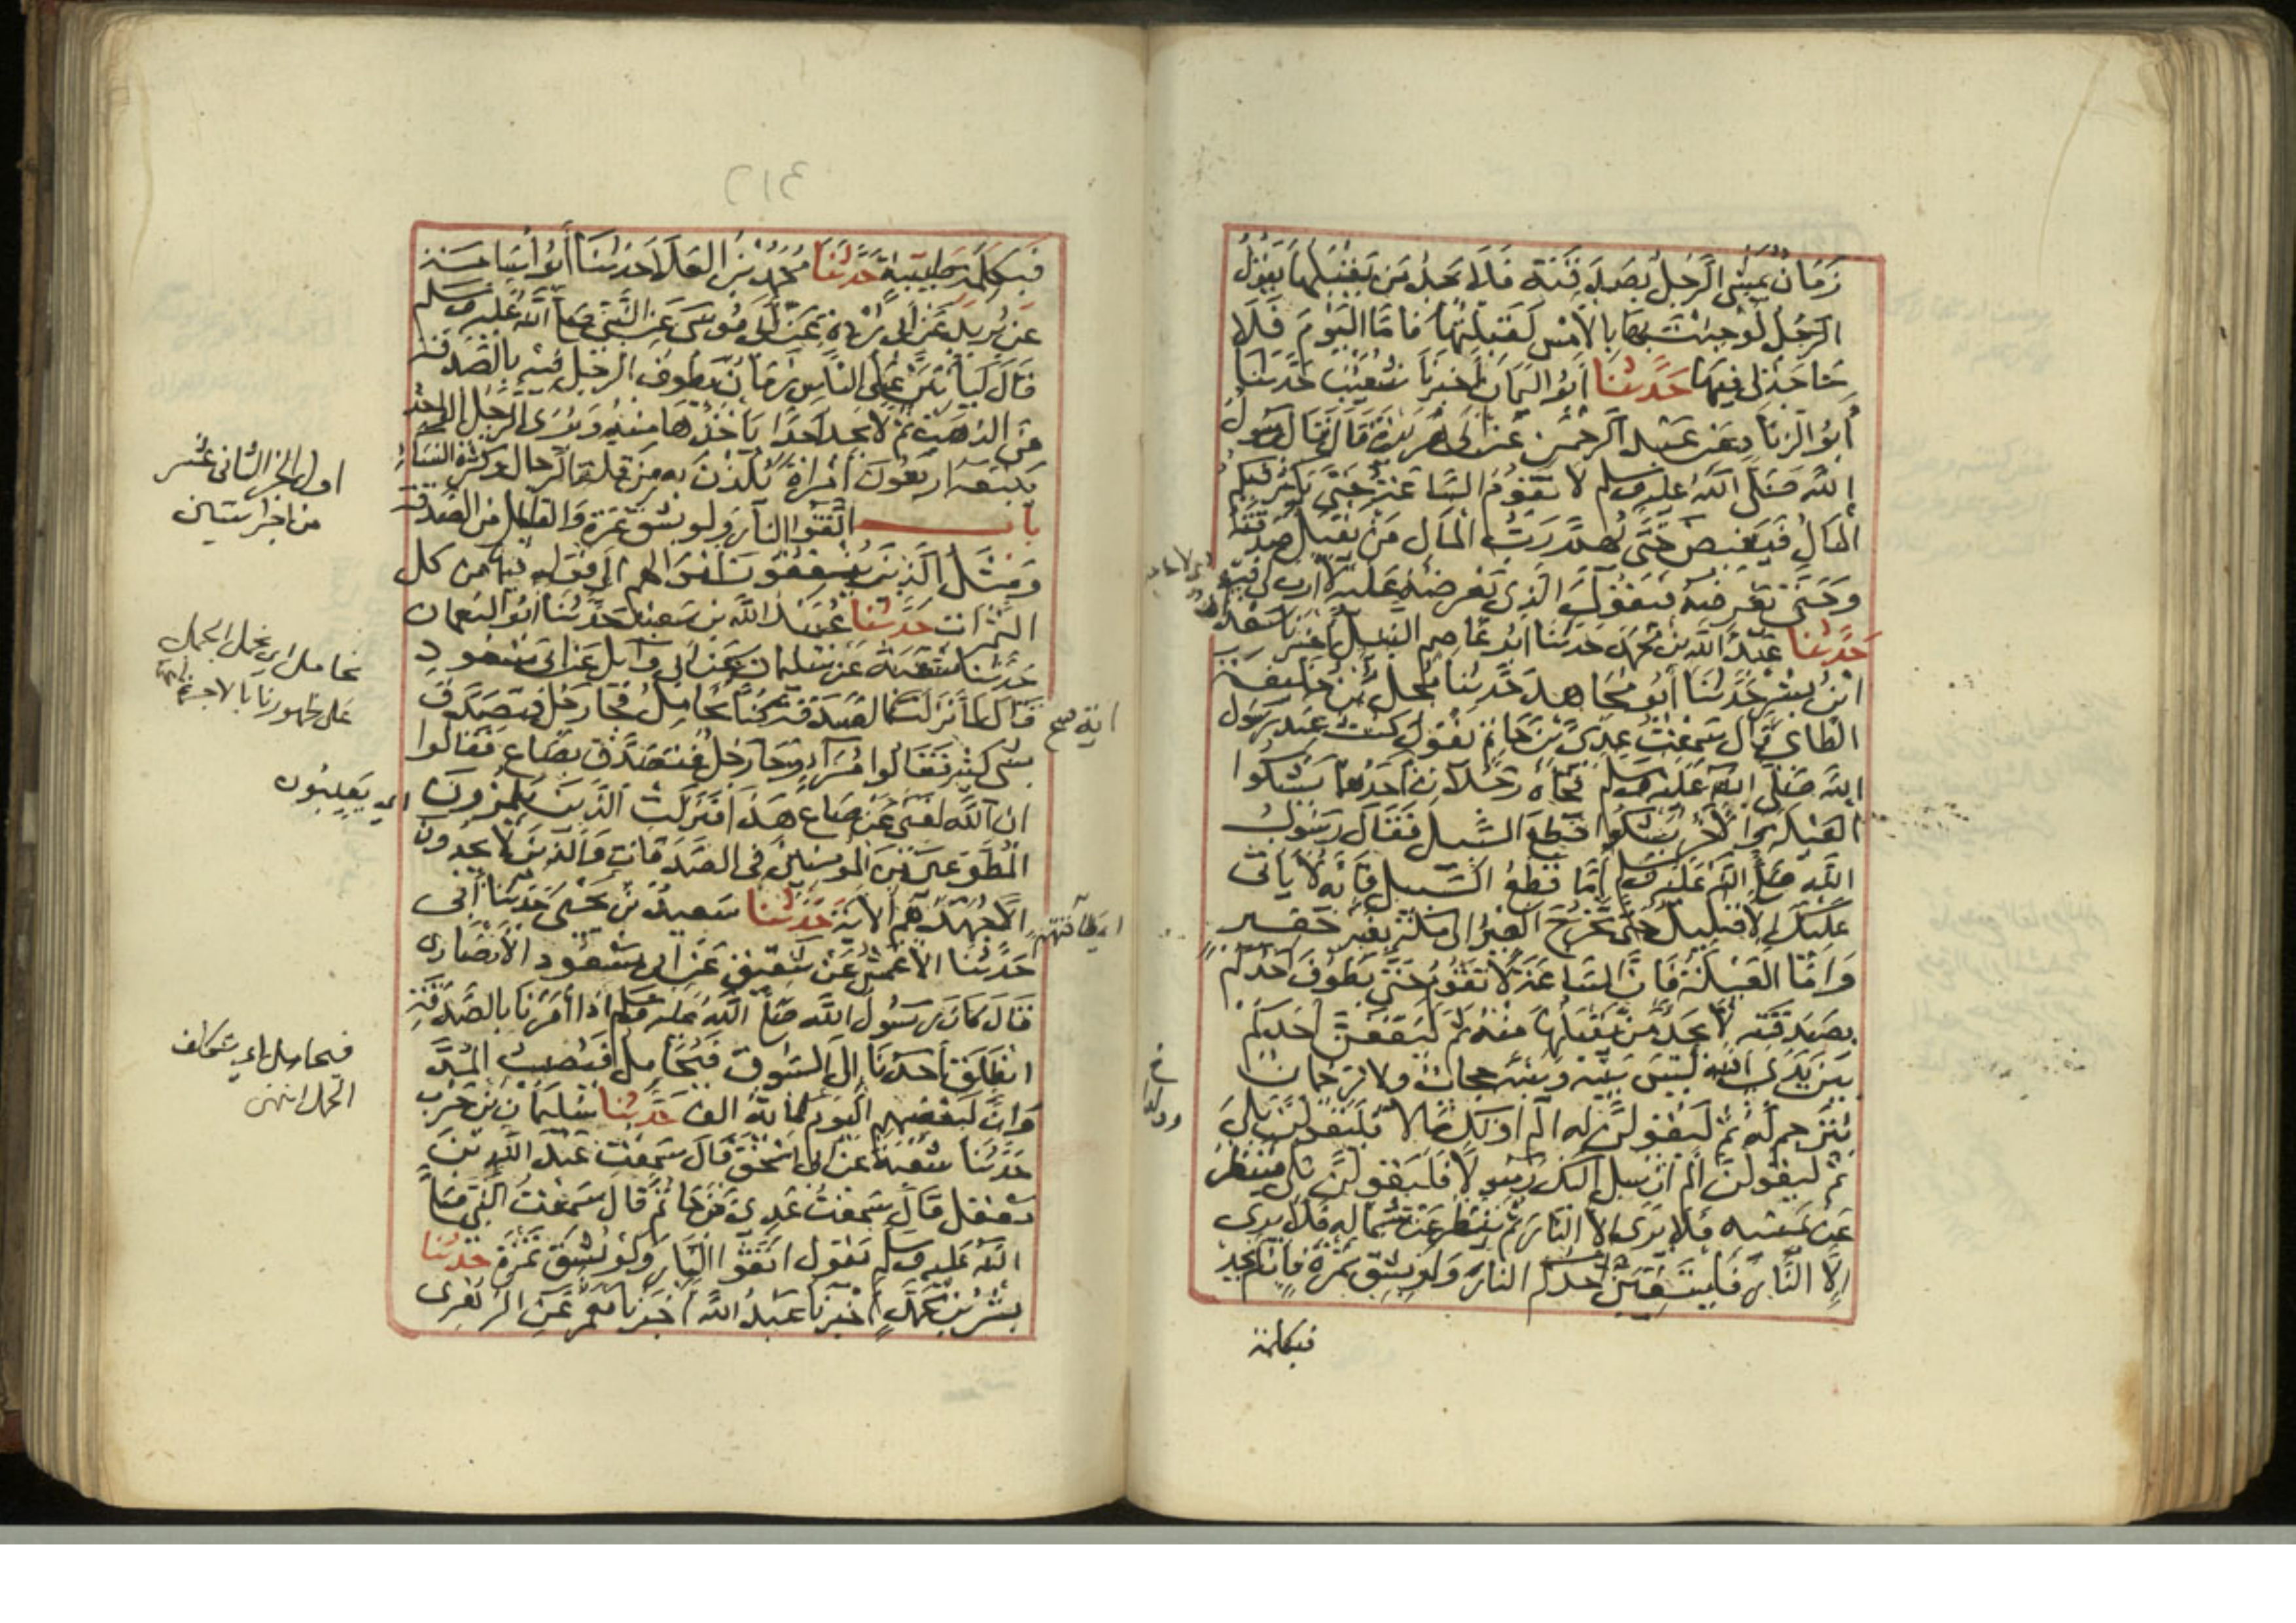 زَمَانٌ يَمْشِي الرَّجُلُ بِصَدَقَتِهِ فَلَا يَجِدُ مَنْ يَقْبَلُهَا يَقُولُ
الرَّجُلُ لَوْ جِئْتَ بِهَا بِالْأَمْسِ لَقَبِلْتُهَا فَأَمَّا الْيَوْمَ فَلَا
حَاجَةَ لِي فِيهَا حَدَّثَنَا أَبُو الْيَمَانِ أَخْبَرَنَا شُعَيْبٌ حَدَّثَنَا
أَبُو الزِّنَادِ عَنْ عَبْدِ الرَّحْمَنِ عَنْ أَبِي هُرَيْرَةَ قَالَ قَالَ رَسُولُ
اللَّهِ صَلَّى اللَّهُ عَلَيْهِ وَسَلَّمَ لَا تَقُومُ السَّاعَةُ حَتَّى يَكْثُرَ فِيكُمُ
الْمَالُ فَيَفِيضَ حَتَّى يُهِمَّ رَبَّ الْمَالِ مَنْ يَقْبَلُ صَدَقَتَهُ
وَحَتَّى يَعْرِضَهُ فَيَقُولَ الَّذِي يَعْرِضُهُ عَلَيْهِ لَا أَرَبَ لِي فيه
حَدَّثَنَا عَبْدُ اللَّهِ بْنُ مُحَمَّدٍ حَدَّثَنَا أَبُو عَاصِمٍ النَّبِيلُ أَخْبَرَنَا سَعْدَانُ
ابْنُ بِشْرٍ حَدَّثَنَا أَبُو مُجَاهِدٍ حَدَّثَنَا مُحِلُّ بْنُ خَلِيفَةَ
الطَّائِيُّ قَالَ سَمِعْتُ عَدِيَّ بْنَ حَاتِمٍ يَقُولُ كُنْتُ عِنْدَ رَسُولِ
اللَّهِ صَلَّى اللَّهُ عَلَيْهِ وَسَلَّمَ فَجَاءَهُ رَجُلَانِ أَحَدُهُمَا يَشْكُوا
الْعَيْلَةَ وَالْآخَرُ يَشْكُوا قَطْعَ السَّبِيلِ فَقَالَ رَسُولُ
اللَّهِ صَلَّى اللَّهُ عَلَيْهِ وَسَلَّمَ أَمَّا قَطْعُ السَّبِيلِ فَإِنَّهُ لَا يَأْتِي
عَلَيْكَ إِلَّا قَلِيلٌ حَتَّى تَخْرُجَ الْعِيرُ إِلَى مَكَّةَ بِغَيْرِ خَفِيرٍ
وَأَمَّا الْعَيْلَةُ فَإِنَّ السَّاعَةَ لَا تَقُومُ حَتَّى يَطُوفَ أَحَدُكُمْ
بِصَدَقَتِهِ لَا يَجِدُ مَنْ يَقْبَلُهَا مِنْهُ ثُمَّ لَيَقِفَنَّ أَحَدُكُمْ
بَيْنَ يَدَيِ اللَّهِ لَيْسَ بَيْنَهُ وَبَيْنَهُ حِجَابٌ وَلَا تُرْجُمَانٌ
يُتَرْجِمُ لَهُ ثُمَّ لَيَقُولَنَّ لَهُ أَلَمْ أُوتِكَ مَالًا فَلَيَقُولَنَّ بَلَى
ثُمَّ لَيَقُولَنَّ أَلَمْ أُرْسِلْ إِلَيْكَ رَسُولًا فَلَيَقُولَنَّ بَلَى فَيَنْظُرُ
عَنْ يَمِينِهِ فَلَا يَرَى إِلَّا النَّارَ ثُمَّ يَنْظُرُ عَنْ شِمَالِهِ فَلَا يَرَى
إِلَّا النَّارَ فَلْيَتَّقِيَنَّ أَحَدُكُمُ النَّارَ وَلَوْ بِشِقِّ تَمْرَةٍ فَإِنْ لَمْ يَجِدْ
فبكلمة
٢١٤
فَبِكَلِمَةٍ طَيِّبَةٍ حَدَّثَنَا مُحَمَّدُ بْنُ الْعَلَاءِ حَدَّثَنَا أَبُو أُسَامَةَ
عَنْ بُرَيْدٍ عَنْ أَبِي بُرْدَةَ عَنْ أَبِي مُوسَى عَنِ النَّبِيِّ صَلَّى اللَّهُ عَلَيْهِ وَسَلَّمَ
قَالَ لَيَأْتِيَنَّ عَلَى النَّاسِ زَمَانٌ يَطُوفُ الرَّجُلُ فِيهِ بِالصَّدَقَةِ
مِنَ الذَّهَبِ ثُمَّ لَا يَجِدُ أَحَدًا يَأْخُذُهَا مِنْهُ وَيُرَى الرَّجُلُ الْوَاحِدُ
يَتْبَعُهُ أَرْبَعُونَ امْرَأَةً يَلُذْنَ بِهِ مِنْ قِلَّةِ الرِّجَالِ وَكَثْرَةِ النِّسَاءِ
باب اتَّقُوا النَّارَ وَلَوْ بِشِقِّ تَمْرَةٍ وَالْقَلِيلِ مِنَ الصَّدَقَةِ
وَمَثَلُ الَّذِينَ يُنْفِقُونَ أَمْوَالَهُمْ إلى قوله فيها من كل
الثمرات حَدَّثَنَا عُبَيْدُ اللَّهِ بْنُ سَعِيدٍ حَدَّثَنَا أَبُو النُّعْمَانِ
حَدَّثَنَا شُعْبَةُ عَنْ سُلَيْمَانَ عَنْ أَبِي وَائِلٍ عَنْ أَبِي مَسْعُودٍ
قَالَ لَمَّا نَزَلَتْ الصَّدَقَةِ كُنَّا نُحَامِلُ فَجَاءَ رَجُلٌ فَتَصَدَّقَ
بِشَيْءٍ كَثِيرٍ فَقَالُوا مُرَاءٍ وَجَاءَ رَجُلٌ فَتَصَدَّقَ بِصَاعٍ فَقَالُوا
إِنَّ اللَّهَ لَغَنِيٌّ عَنْ صَاعِ هَذَا فَنَزَلَتْ الَّذِينَ يَلْمِزُونَ
الْمُطَّوِّعِينَ مِنَ الْمُؤْمِنِينَ فِي الصَّدَقَاتِ وَالَّذِينَ لَا يَجِدُونَ
إِلَّا جُهْدَهُمْ الْآيَةَ حَدَّثَنَا سَعِيدُ بْنُ يَحْيَى حَدَّثَنَا أَبِي
حَدَّثَنَا الْأَعْمَشُ عَنْ شَقِيقٍ عَنْ أَبِي مَسْعُودٍ الْأَنْصَارِي
قَالَ كَانَ رَسُولُ اللَّهِ صَلَّى اللَّهُ عَلَيْهِ وَسَلَّمَ إِذَا أَمَرَنَا بِالصَّدَقَةِ
انْطَلَقَ أَحَدُنَا إِلَى السُّوقِ فَيُحَامِلُ فَيُصِيبُ الْمُدَّ
وَإِنَّ لِبَعْضِهِمُ الْيَوْمَ لَمِائَةَ أَلْفٍ حَدَّثَنَا سُلَيْمَانُ بْنُ حَرْبٍ
حَدَّثَنَا شُعْبَةُ عَنْ أَبِي إِسْحَقَ قَالَ سَمِعْتُ عَبْدَ اللَّهِ بْنَ
مَعْقِلٍ قَالَ سَمِعْتُ عَدِيَّ بْنَ حَاتِمٍ قَالَ سَمِعْتُ النَّبِيَّ صَلَّى
اللَّهُ عَلَيْهِ وَسَلَّمَ يَقُولُ اتَّقُوا النَّارَ وَلَوْ بِشِقِّ تَمْرَةٍ حَدَّثَنَا
بِشْرُ بْنُ مُحَمَّدٍ أَخْبَرَنَا عَبْدُ اللَّهِ أَخْبَرَنَا مَعْمَرٌ عَنِ الزُّهْرِي
آية صح
أي طاقتهم
اول الجزء الثاني عشر
من اجزا ستين
نحامل اي نحمل الحمل
على ظهورنا بالاجرة
اي يعيبون
فيحامل اي يتكلف
الحمل انتهى